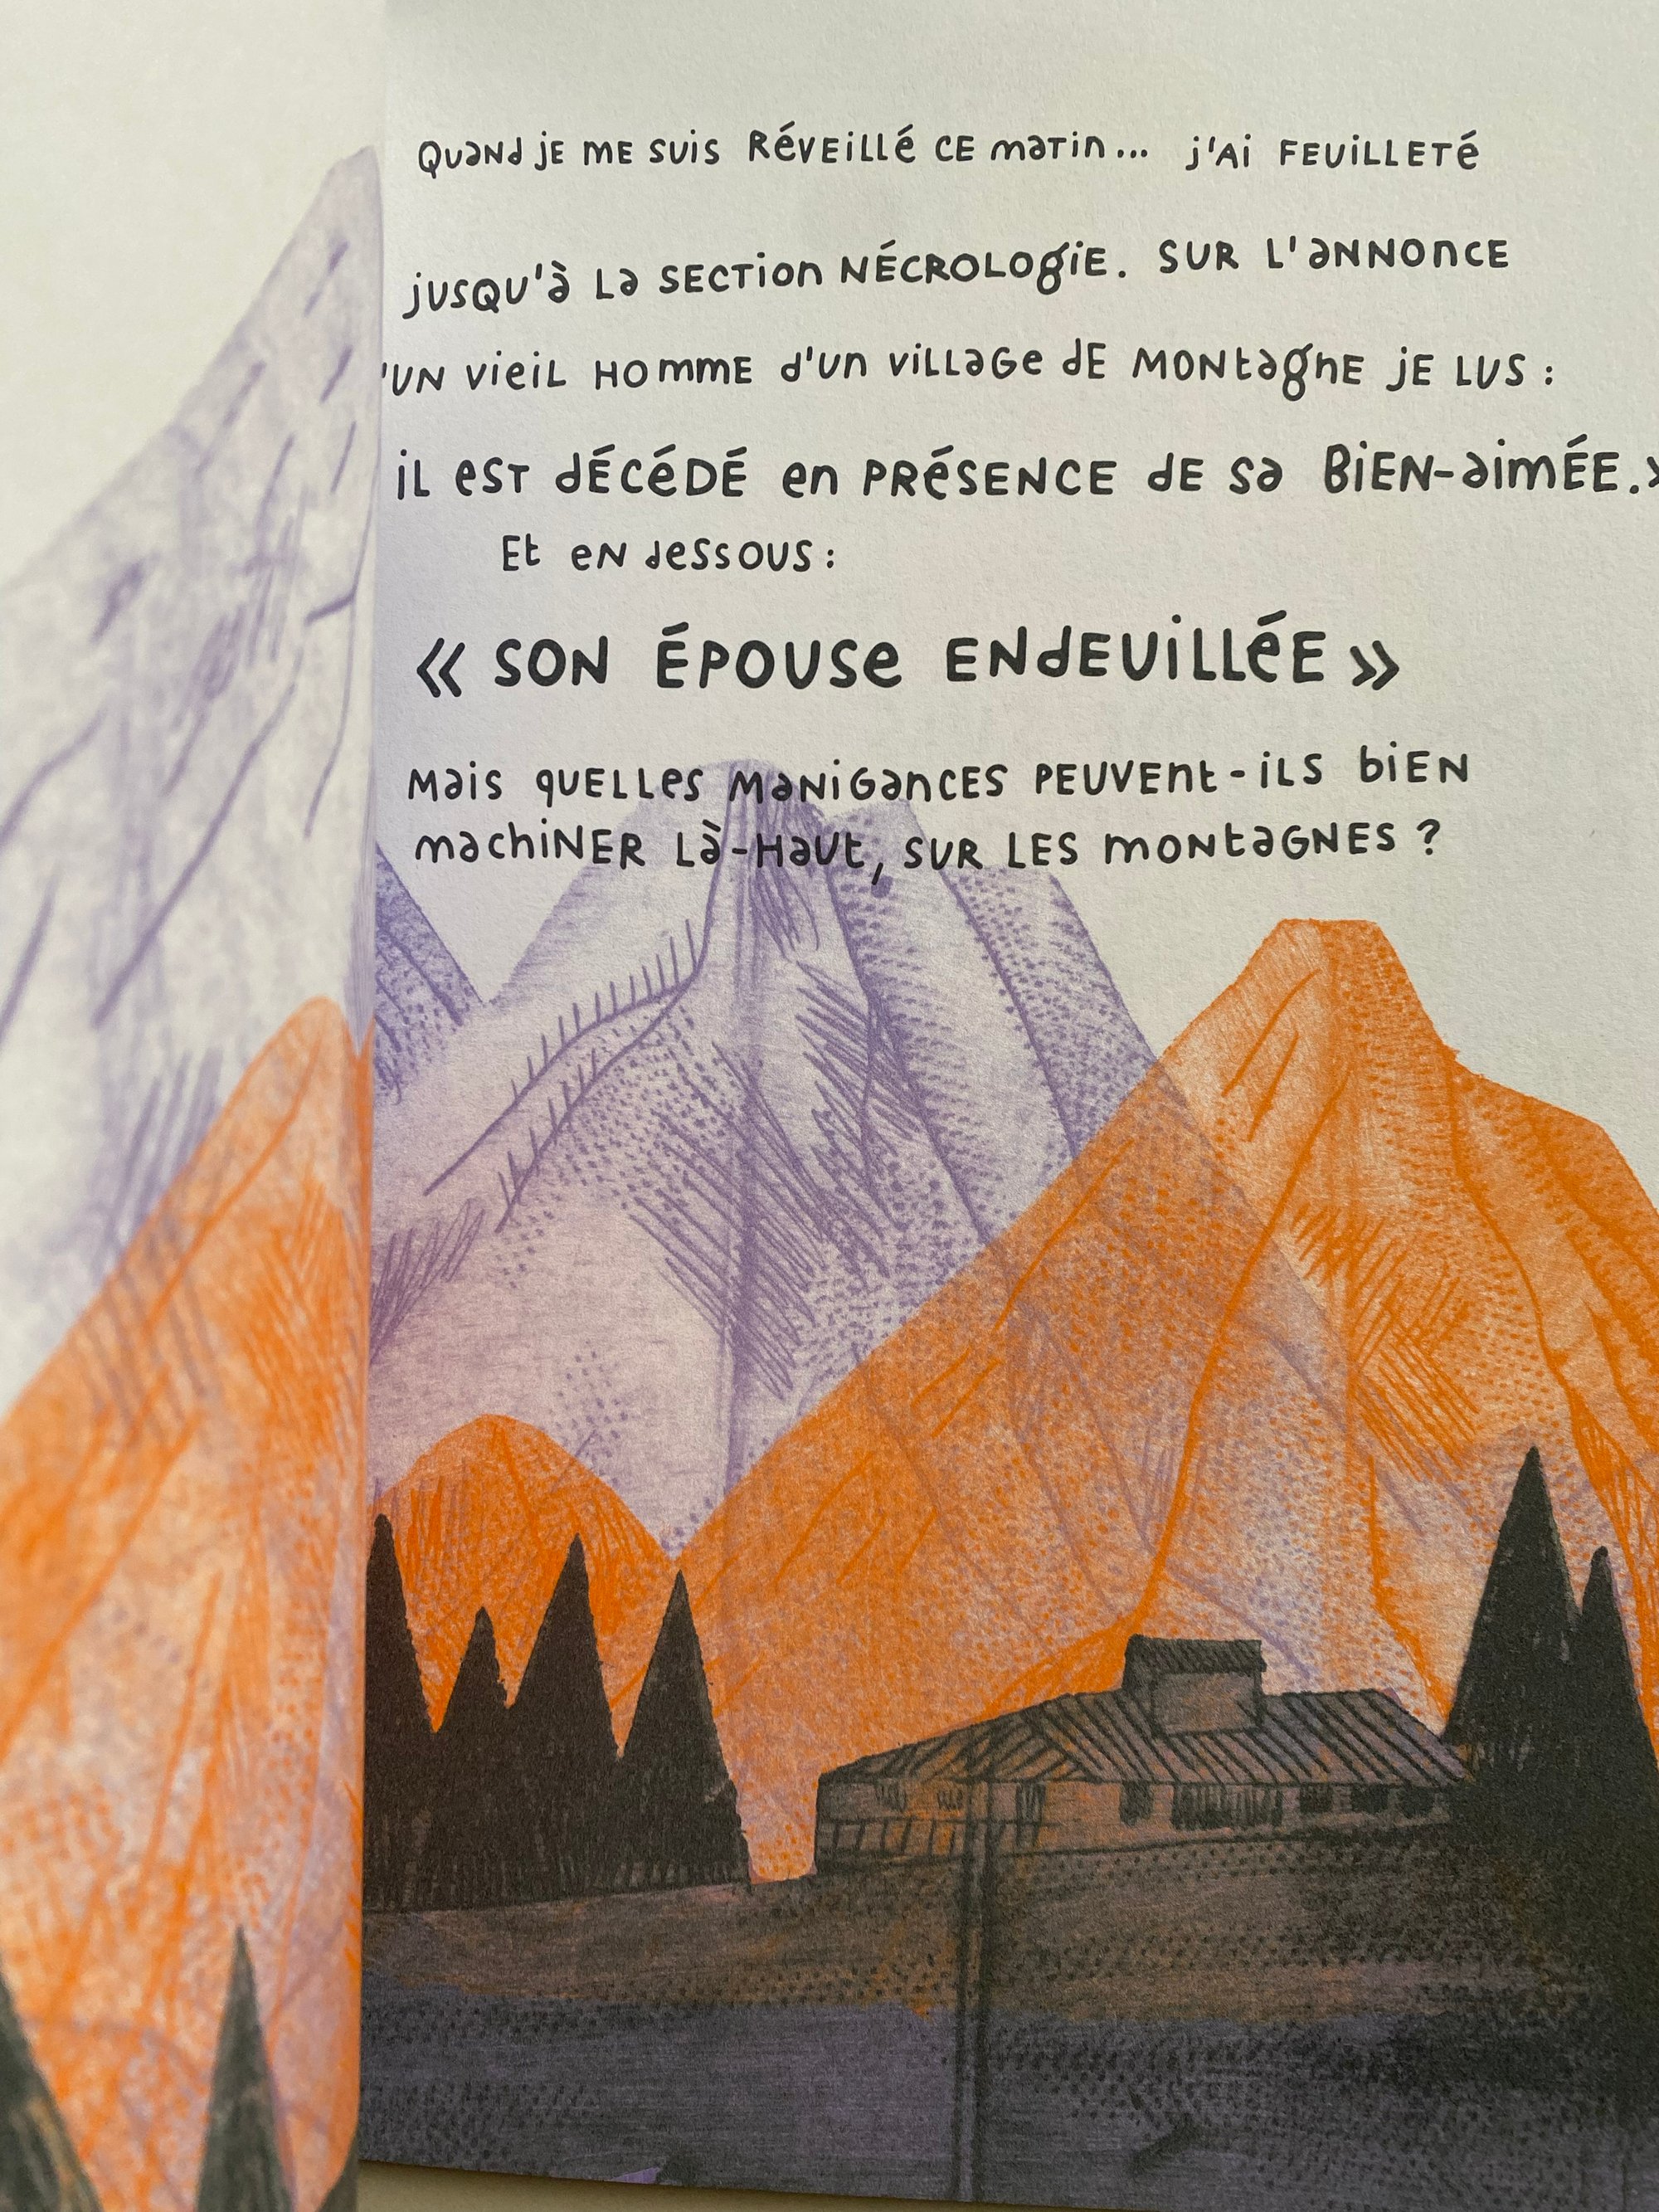 Quand je me suis réveillé ce matin... j'ai feuilleté
jusqu'à la section nécrologie. Sur l'annonce
'un vieil homme d'un village de montagne je lus :
il est décédé en présence de sa bien-aimée.»
Et en dessous :
« SON ÉPOUSE ENDEUILLÉE »
Mais quelles manigances peuvent-ils bien
machiner là-haut, sur les montagnes ?